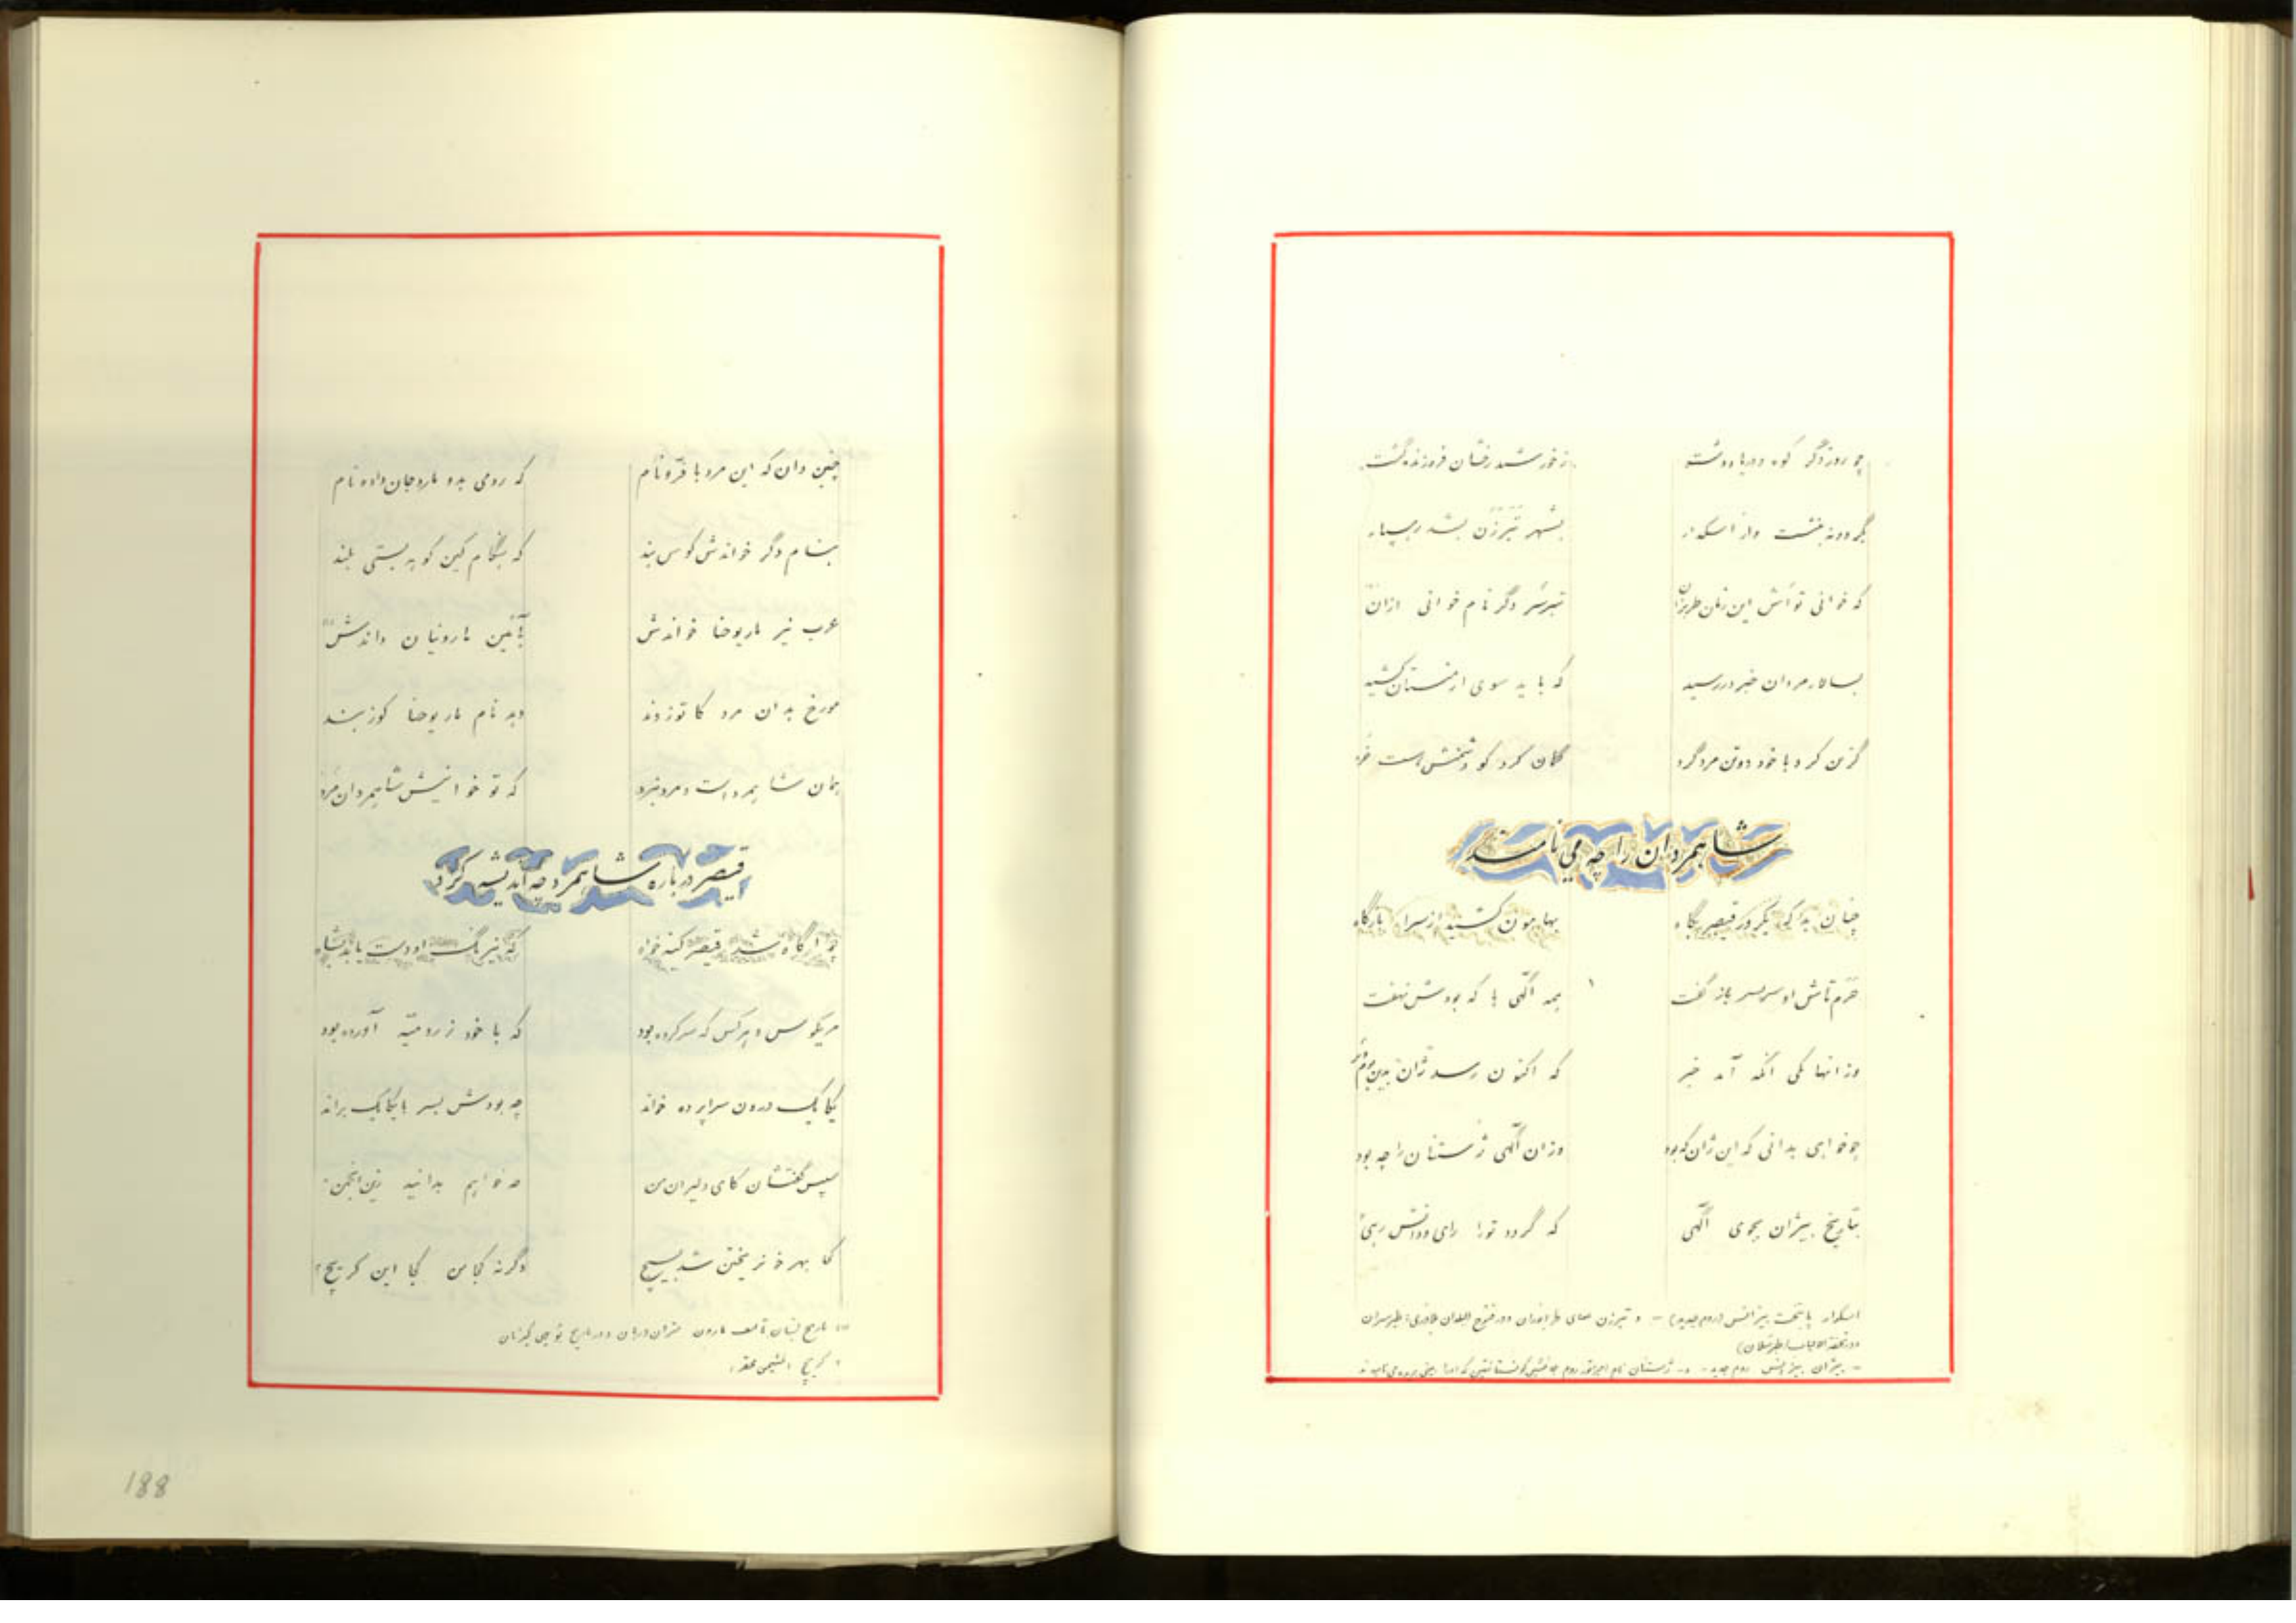 چو روز دگر کوه و دریا و دشت ز خورشید رخشان فروزنده گشت
بگردونه بنشست واز اسکدار بشهر تبرزن بشد رهسپار
که خوانی تواش این زمان طربزان تبرسر دگر نام خوانی ازان
بسالار مردان خبر در رسید که باید سوی ارمنستان کشید
گزین کرد با خود دو تن مرد گرد گمان کرد کو دشمنش هست خرد
شاهمردان را چه می نامند
چنان بد که یکروز قیصر پگاه بهامون کشید از سرا بارگاه
خرم تاش او سربسر باز گفت همه آگهی ها که بودش نهفت
وز انها یکی آنکه آمد خبر که اکنون رسد ژان بدین بوم
چو خواهی بدانی که این ژان که بود وزان آگهی ژستنان را چه بود
بتاریخ بیزان بجوی آگهی که گردد تو را رای ودانش رهی
اسکدار پایتخت بیزانس (روم جدید) - و تبرزن
در تحفة
- بیزان بیزانس روم جدید - و - ژستنان نام امپراتور روم
چنین دان که این مرد با فرّ و نام که رومی بدو ماردجان داده نام
بنام دگر خواندش کوس بند که هنگام کین کوبه بستی بلند
عرب نیز ماریوحنا خواندش بآئین مارونیان داندش
مورخ بدان مرد کاتوزوند دهد نام ماریوحنا کوزبند
همان شاهمرد است و مرد نبرد که تو خوانیش شاهمردان مرد
قیصر درباره شاهمرد چه اندیشه کرد
چو آگاه شد قیصر کینه خواه که نیرنگ او دست یابد بشاه
مریکوس و هرکس که سرکرده بود که با خود ز رومیّه آورده بود
یکایک درون سراپرده خواند چه بودش بسر با یکایک براند
سپس گفتشان کای دلیران من چه خواهم بدانید زین انجمن
کجا بهر خونریختن شد بسیج وگرنه کجا من کجا این کریچ
تاریخ لبنان تألیف مارون
کریچ
188